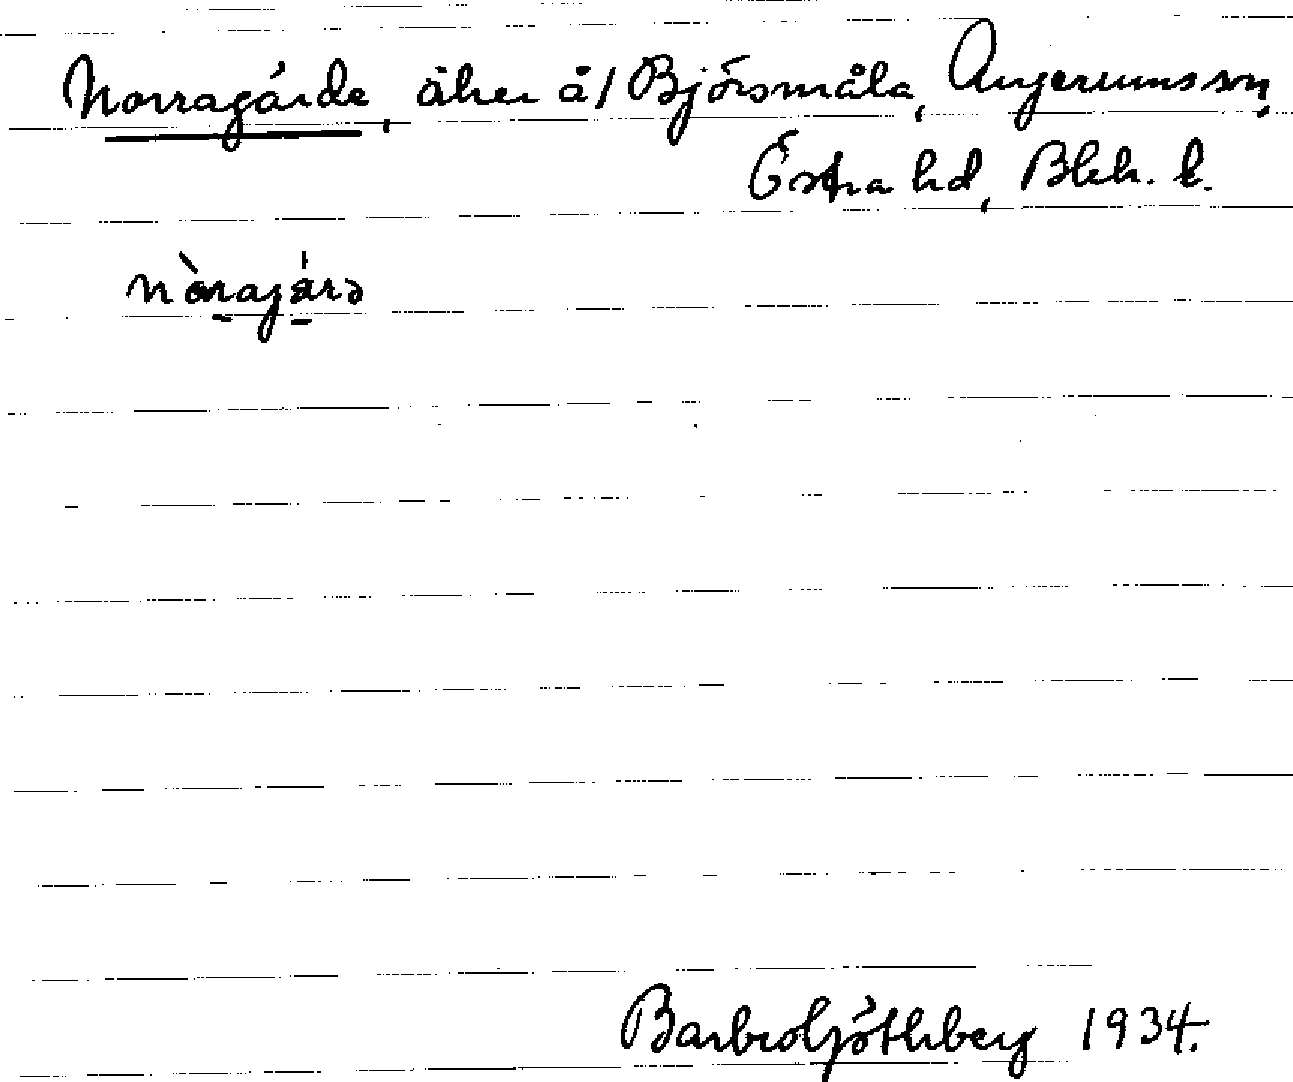 Norragärde, åker å/ Björsmåla, Augerumssn,
Östra hd, Blek. l.
Barbro Göthberg 1934.